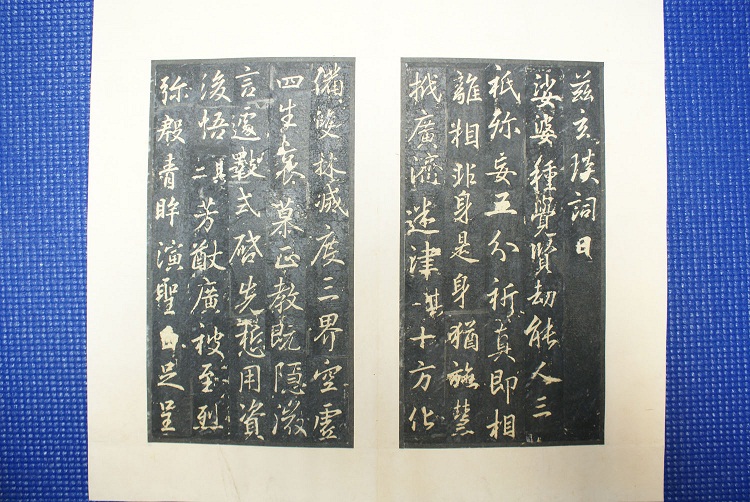 茲玄琰詞曰
娑婆種覺賢劫能人三
祇殄妄五分祈真即相
離相非身是身猶施慧
栧廣濟迷津其一十方化
備雙林滅度三界空虛
四生哀慕正教既隱微
言遽斁式啓先慈用資
後悟其二芳猷廣被至烈
弥殷青眸演聖白足呈